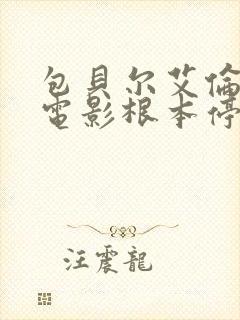 包貝尔艾倫
電影根本停
汪震龍